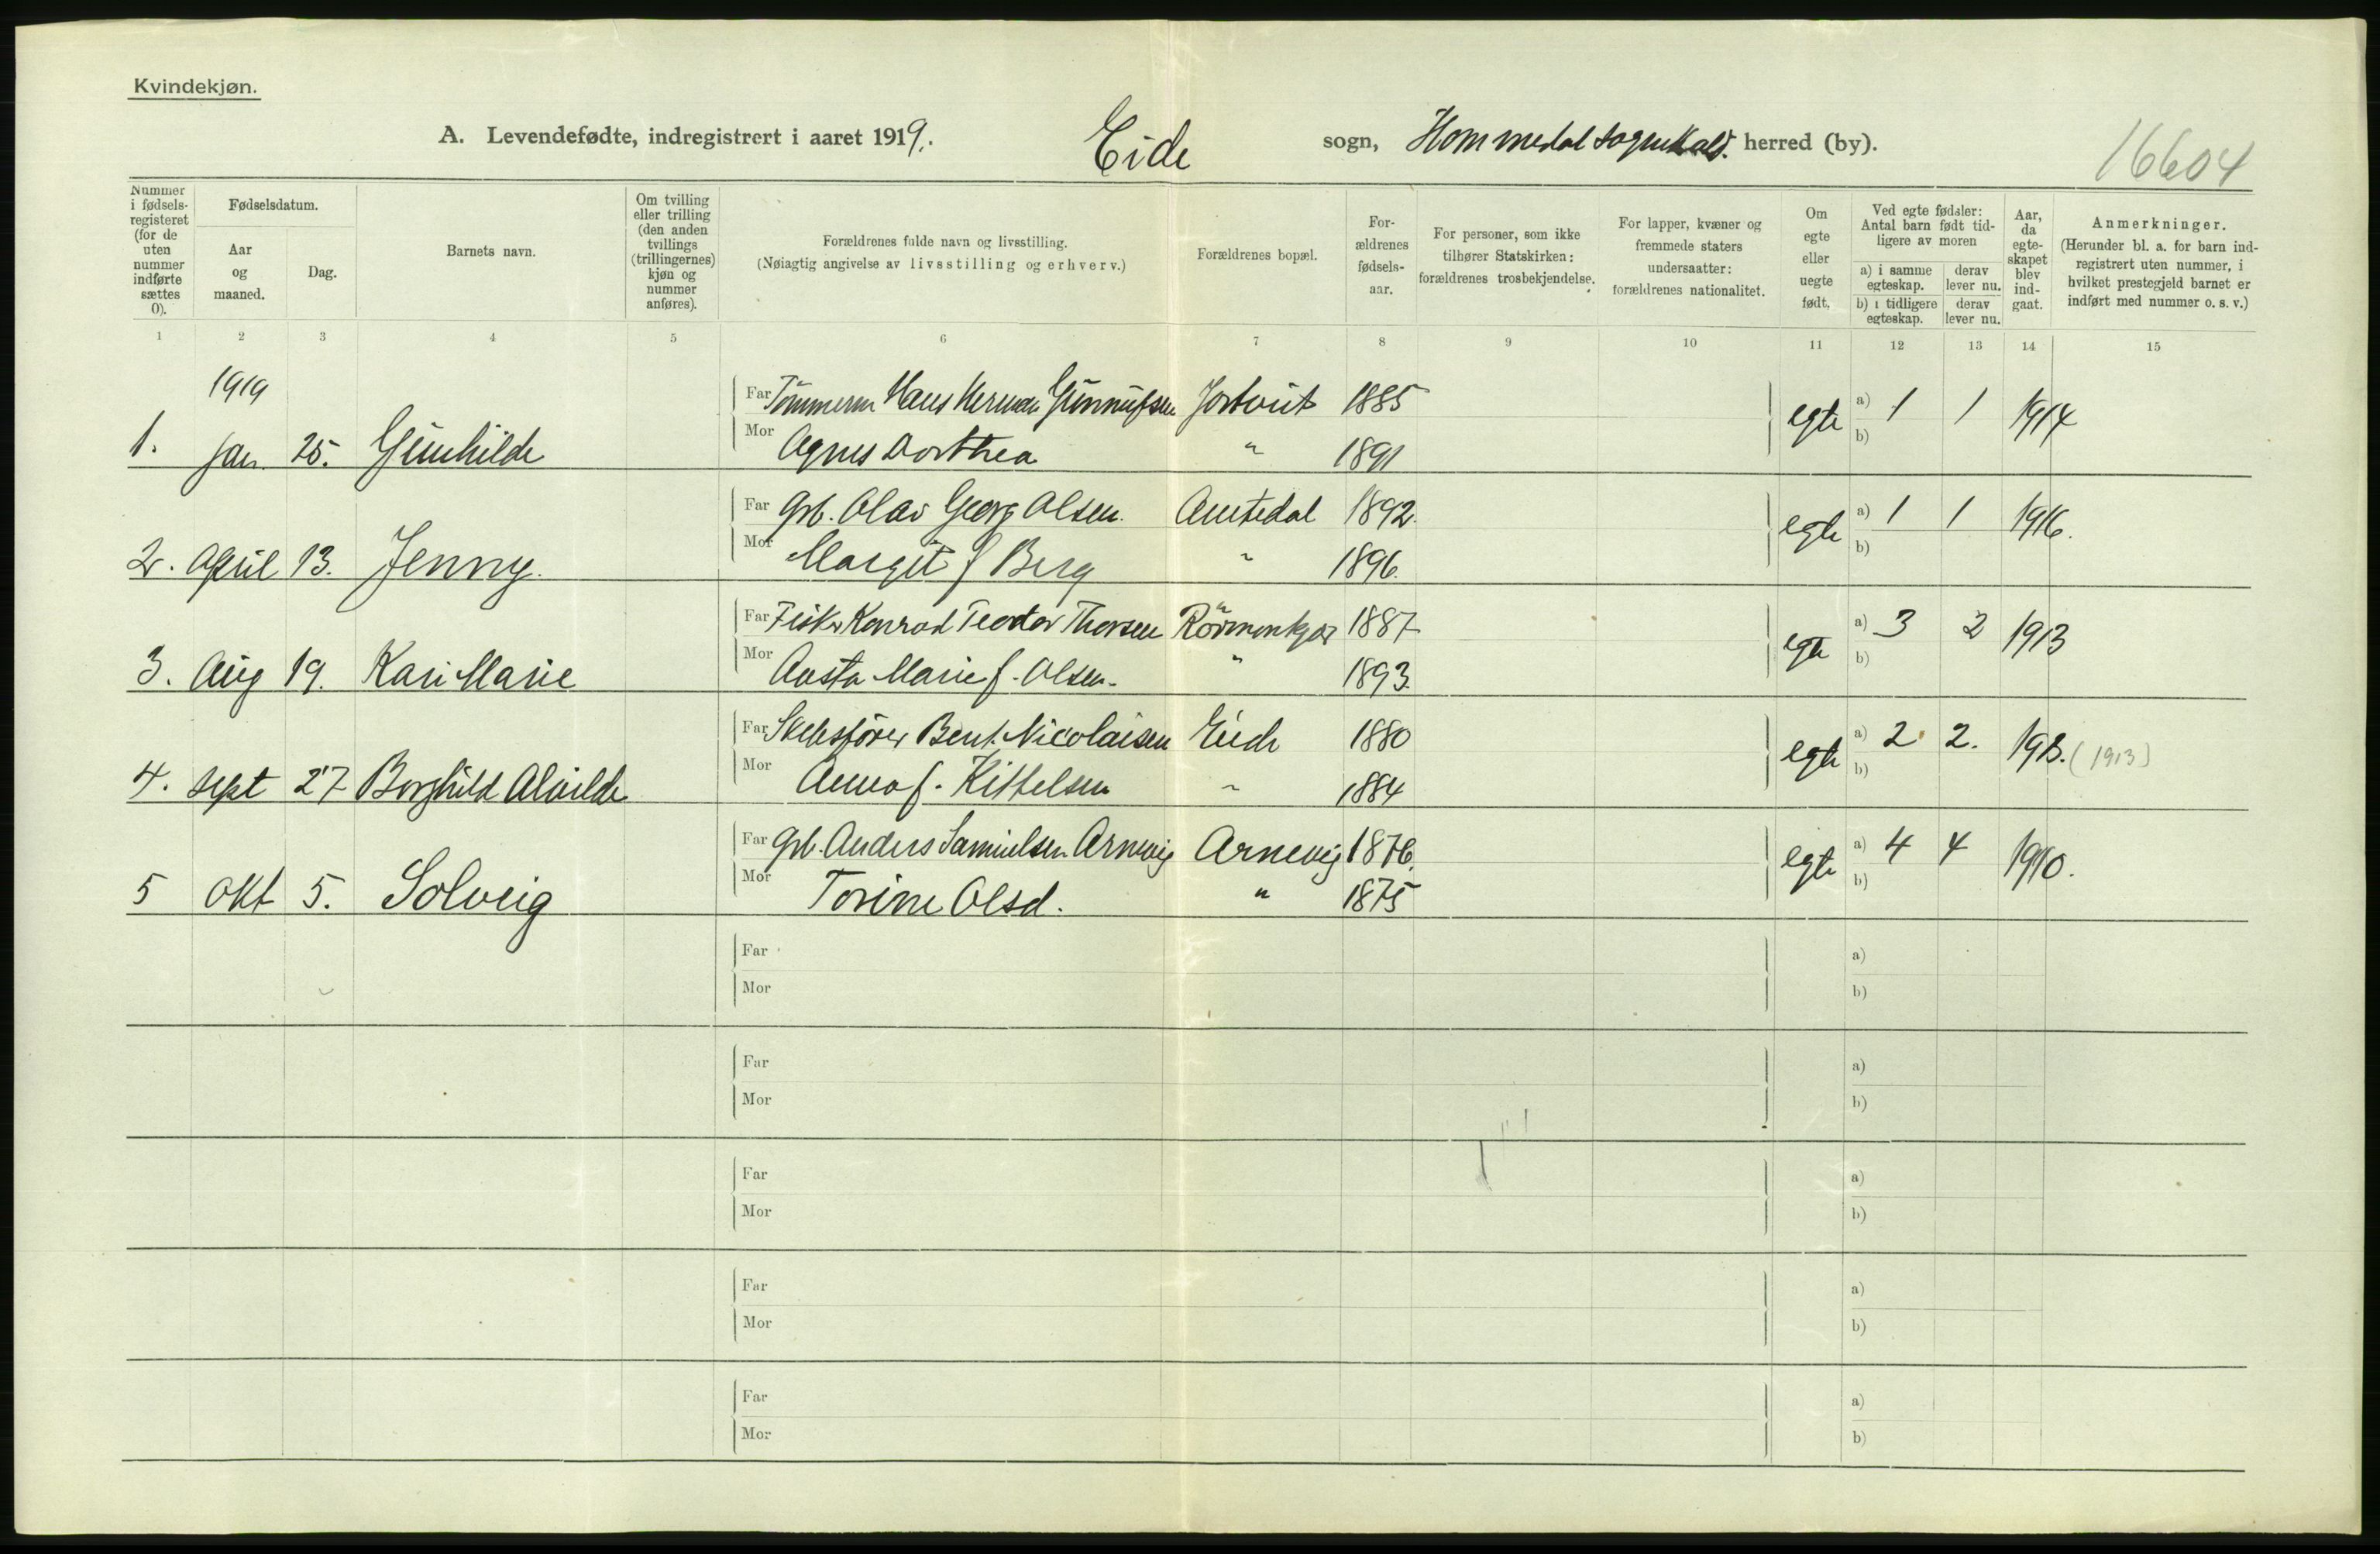 Kvindekjøn.
A. Levendefødte, indregistrert i aaret 1919. Eide sogn, Hommedal sognekald. herred (by). 16604
Nummer i fødsels-registeret (for de uten nummer indførte sættes 0).
Fødselsdatum.
Aar og maaned.
Dag.
Barnets navn.
Om tvilling eller trilling (den anden tvillings (trillingernes) kjøn og nummer anføres).
Forældrenes fulde navn og livsstilling.
(Nøiagtig angivelse av livsstilling og erhverv.)
Forældrenes bopæl.
For-ældrenes fødsels-aar.
For personer, som ikke tilhører Statskirken: forældrenes trosbekjendelse.
For lapper, kvæner og fremmede staters undersaatter: forældrenes nationalitet.
Om egte eller uegte født.
Ved egte fødsler: Antal barn født tid-ligere av moren
a) i samme egteskap. derav lever nu.
b) i tidligere egteskap. derav lever nu.
Aar, da egte-skapet blev ind-gaat.
Anmerkninger.
(Herunder bl. a. for barn ind-registrert uten nummer, i hvilket prestegjeld barnet er indført med nummer o. s. v.)
1 2 3 4 5 6 7 8 9 10 11 12 13 14 15
1919
Far Tømmerm Hans Herman Gunnufsen Jortveit 1885 egte a) 1 1 1914
1. Jan. 25. Gunhilde Mor Agnes Dorthea " 1891 b)
Far Grb. Olav Georg Olsen. Amtedal 1892. egte a) 1 1 1916.
2. April 13. Jenny. Mor Margit f Berg " 1896. b)
Far Fisker Konrad Teodor Thorsen 1887 egte a) 3 2 1913
3. Aug 19. Kari Marie Mor Aasta Marie f. Olsen. " 1893. b)
Far Skibsfører Bent Nicolaisen Eide 1880 egte a) 2 2. 1913. (1913)
4. Sept 27 Borghild Alvilde Mor Anna f. Kittelsen " 1884 b)
Far Grb. Anders Samuelsen Arnevig Arnevig 1876. egte a) 4 4 1910.
5 Okt 5. Solveig Mor Torine Olsd. " 1875 b)
Far a)
Mor b)
Far a)
Mor b)
Far a)
Mor b)
Far a)
Mor b)
Far a)
Mor b)